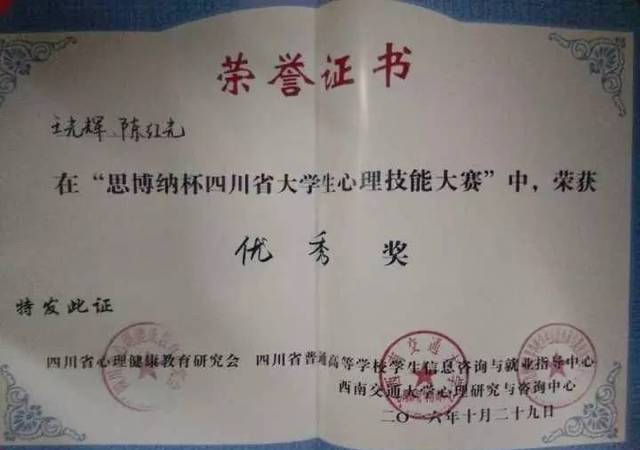 荣誉证书
王光辉、陈红光
在“思博纳杯四川省大学生心理技能大赛”中，荣获
优秀奖
特发此证
四川省心理健康教育研究会 四川省普通高等学校学生信息咨询与就业指导中心
西南交通大学心理研究与咨询中心
二〇一六年十月二十九日